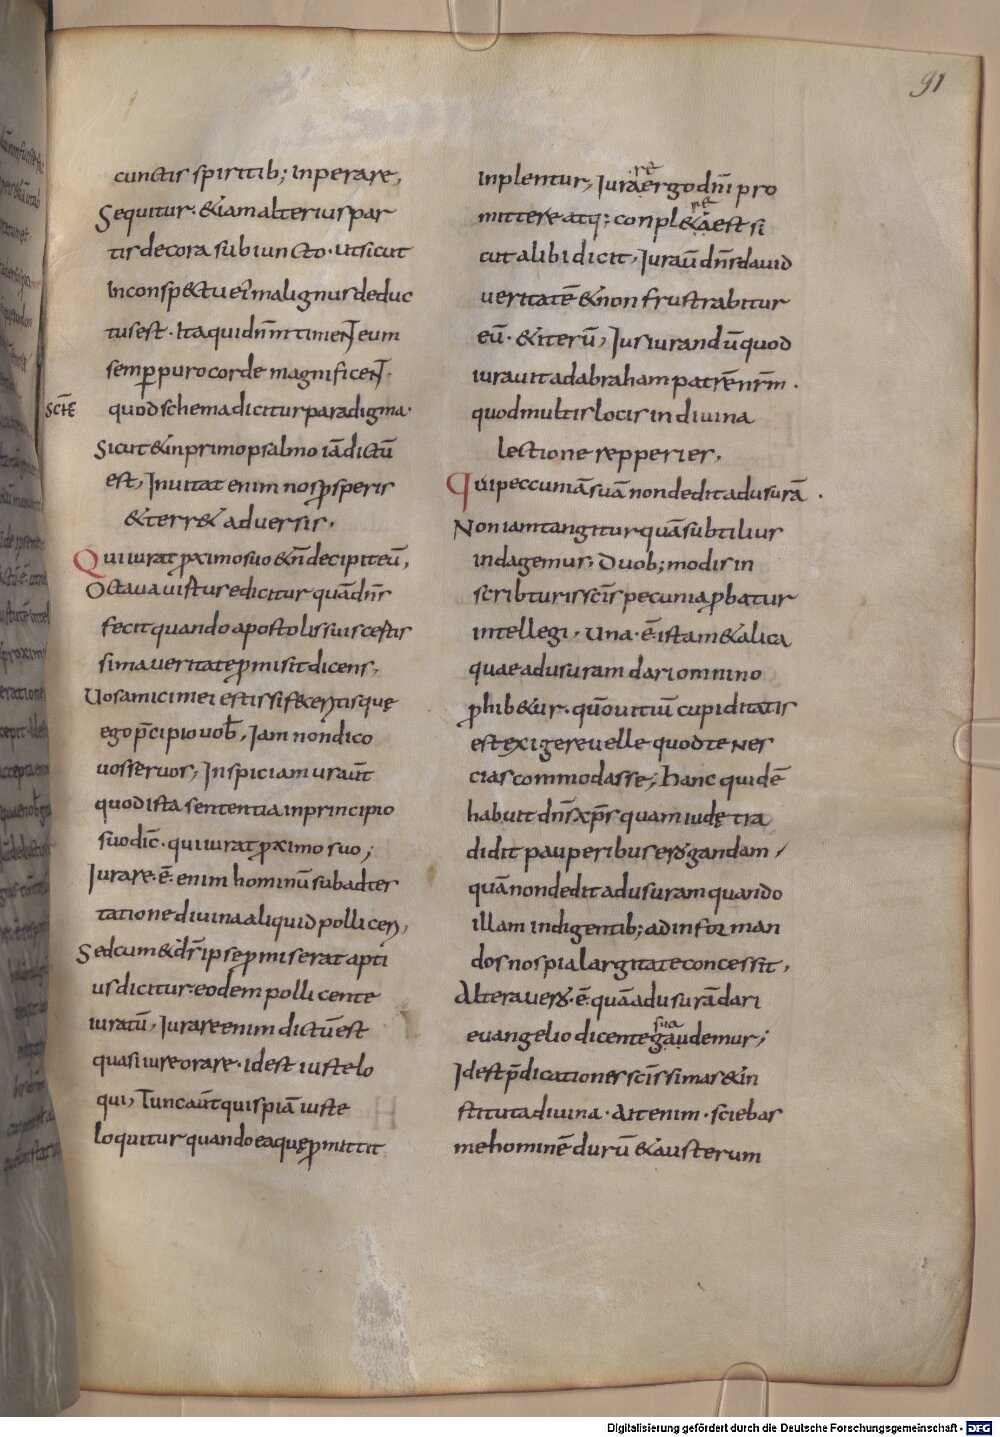 91
cunctis spiritib; inperare,
Sequitur. &iam alterius par
tis decora subiuncto. ut sicut
In conspectu ei' malignus deduc
tus est. Ita qui dn̄m timent eum
semp̱ puro corde magnificent.
SCHE
quod schema dicitur paradigma.
Sicut & in primo psalmo iā dictū
est, Inuitat enim nos p̱speris
& terr& aduersis,
Qui iurat p̱ximo suo & n̄ decipit eū,
Octaua uirtus edicitur quā dn̄s
fecit quando apostolis suis certis
sima ueritate p̱misit dicens,
Uos amici mei estis si feceritis quę
ego p̄cipio uob̄, Iam non dico
uos seruos, Inspiciam' aūt
quod ista sententia in principio
suo dic̄. qui iurat p̱ximo suo;
Iurare. ē. enim hominū sub adtes
tatione diuina aliquid polliceri,
Sed cum & dn̄s ipse p̱miserat apti
us dicitur. eodem pollicente
iuratū, Iurare enim dictū est
quasi iure orare. idest iuste lo
qui, Tunc aūt quispiā iuste
loquitur quando ea quę p̱mittit
inplentur, Iurare ergo dn̄i pro
mittere atq; conplere est si
cut alibi dicit, Iurauī dn̄s dauid
ueritatē & non frustrabitur
eū. & iterū, Iusiurandū quod
iurauit ad abraham patrē nr̄m.
quod multis locis in diuina
lectione repperies,
Qui peccuniā suā non dedit ad usurā.
Non iam tangitur quā subtilius
indagemus, Duob; modis in
scribturis sc̄is pecunia p̱batur
intellegi, Una. ē ista m&alica
quae ad usuram dari omnino
p̱hib&ur. qūo uitiū cupiditatis
est exigere uelle quod te nes
cias commodasse; hanc quidē
habuit dn̄s xp̄s quam iudę tra
didit pauperibus erogandam,
quā non dedit ad usuram quando
illam indigentib; ad informan
dos nos pia largitate concessit,
Altera uero. ē. quā ad usurā dari
euangelio dicente suademur;
Idest p̄dicationes sc̄issimas & in
stituta diuina. Ait enim. sciebas
me hominē durū & austerum
Digitalisierung gefördert durch die Deutsche Forschungsgemeinschaft - DFG